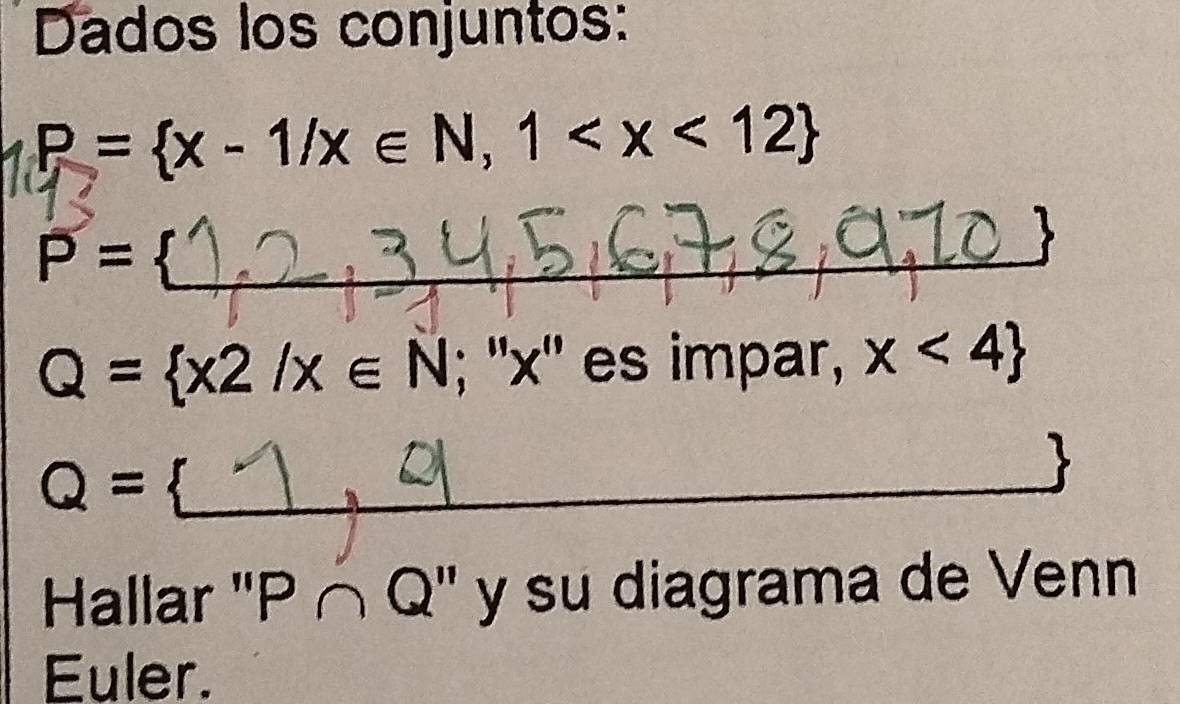 Dados los conjuntos:
P = {x - 1/x ∈ N, 1 < x < 12}
P = {1, 2, 3, 4, 5, 6, 7, 8, 9, 10}
Q = {x2 /x ∈ N; "x" es impar, x < 4}
Q = { 1, 9 }
Hallar "P ∩ Q" y su diagrama de Venn
Euler.